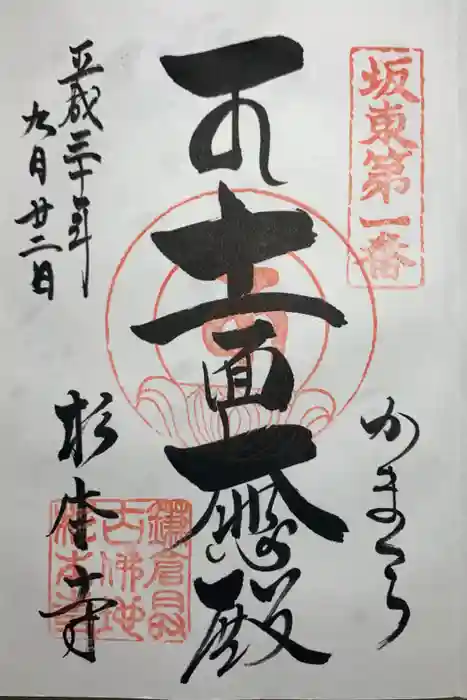 坂東第一番
かまくら
十一面大悲殿
平成三十年
九月廿二日
杉本寺
鎌倉最
古佛地
杉本寺